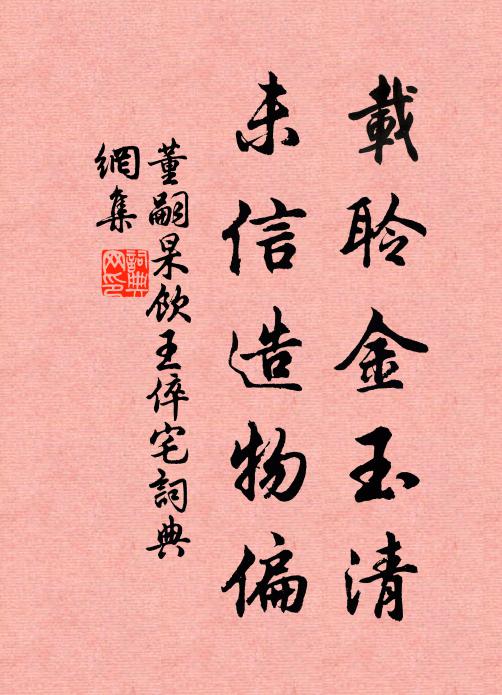 載聆金玉清
未信造物偏
董嗣杲飲王倅宅詞典
網集
詞典
网印